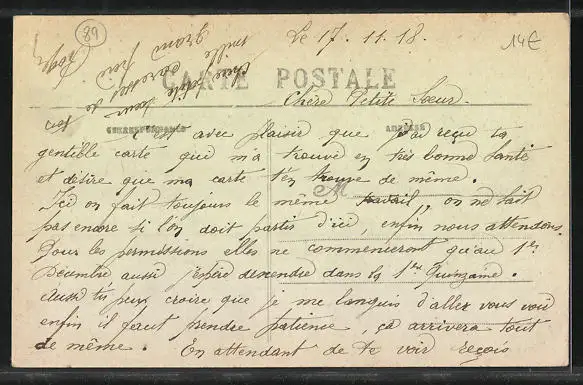 89
Le 17. 11. 18.
14€
CARTE POSTALE
Chère Petite Soeur.
CORRESPONDANCE
ADRESSE
C'est avec plaisir que j'ai reçu ta
gentille carte qui m'a trouvé en très bonne santé
et désire que ma carte t'en trouve de même.
M
Ici on fait toujours le même travail, on ne sait
pas encore si l'on doit partir d'ici, enfin nous attendons.
Pour les permissions elles ne commenceront qu'au 1er
Décembre aussi j'espère descendre dans la 1ère Quinzaine.
Aussi tu peux croire que je me languis d'aller vous voir
enfin il faut prendre patience, ça arrivera tout
de même. En attendant de te voir reçois
chère petite soeur de ton
grand frère
mille caresses
Roger